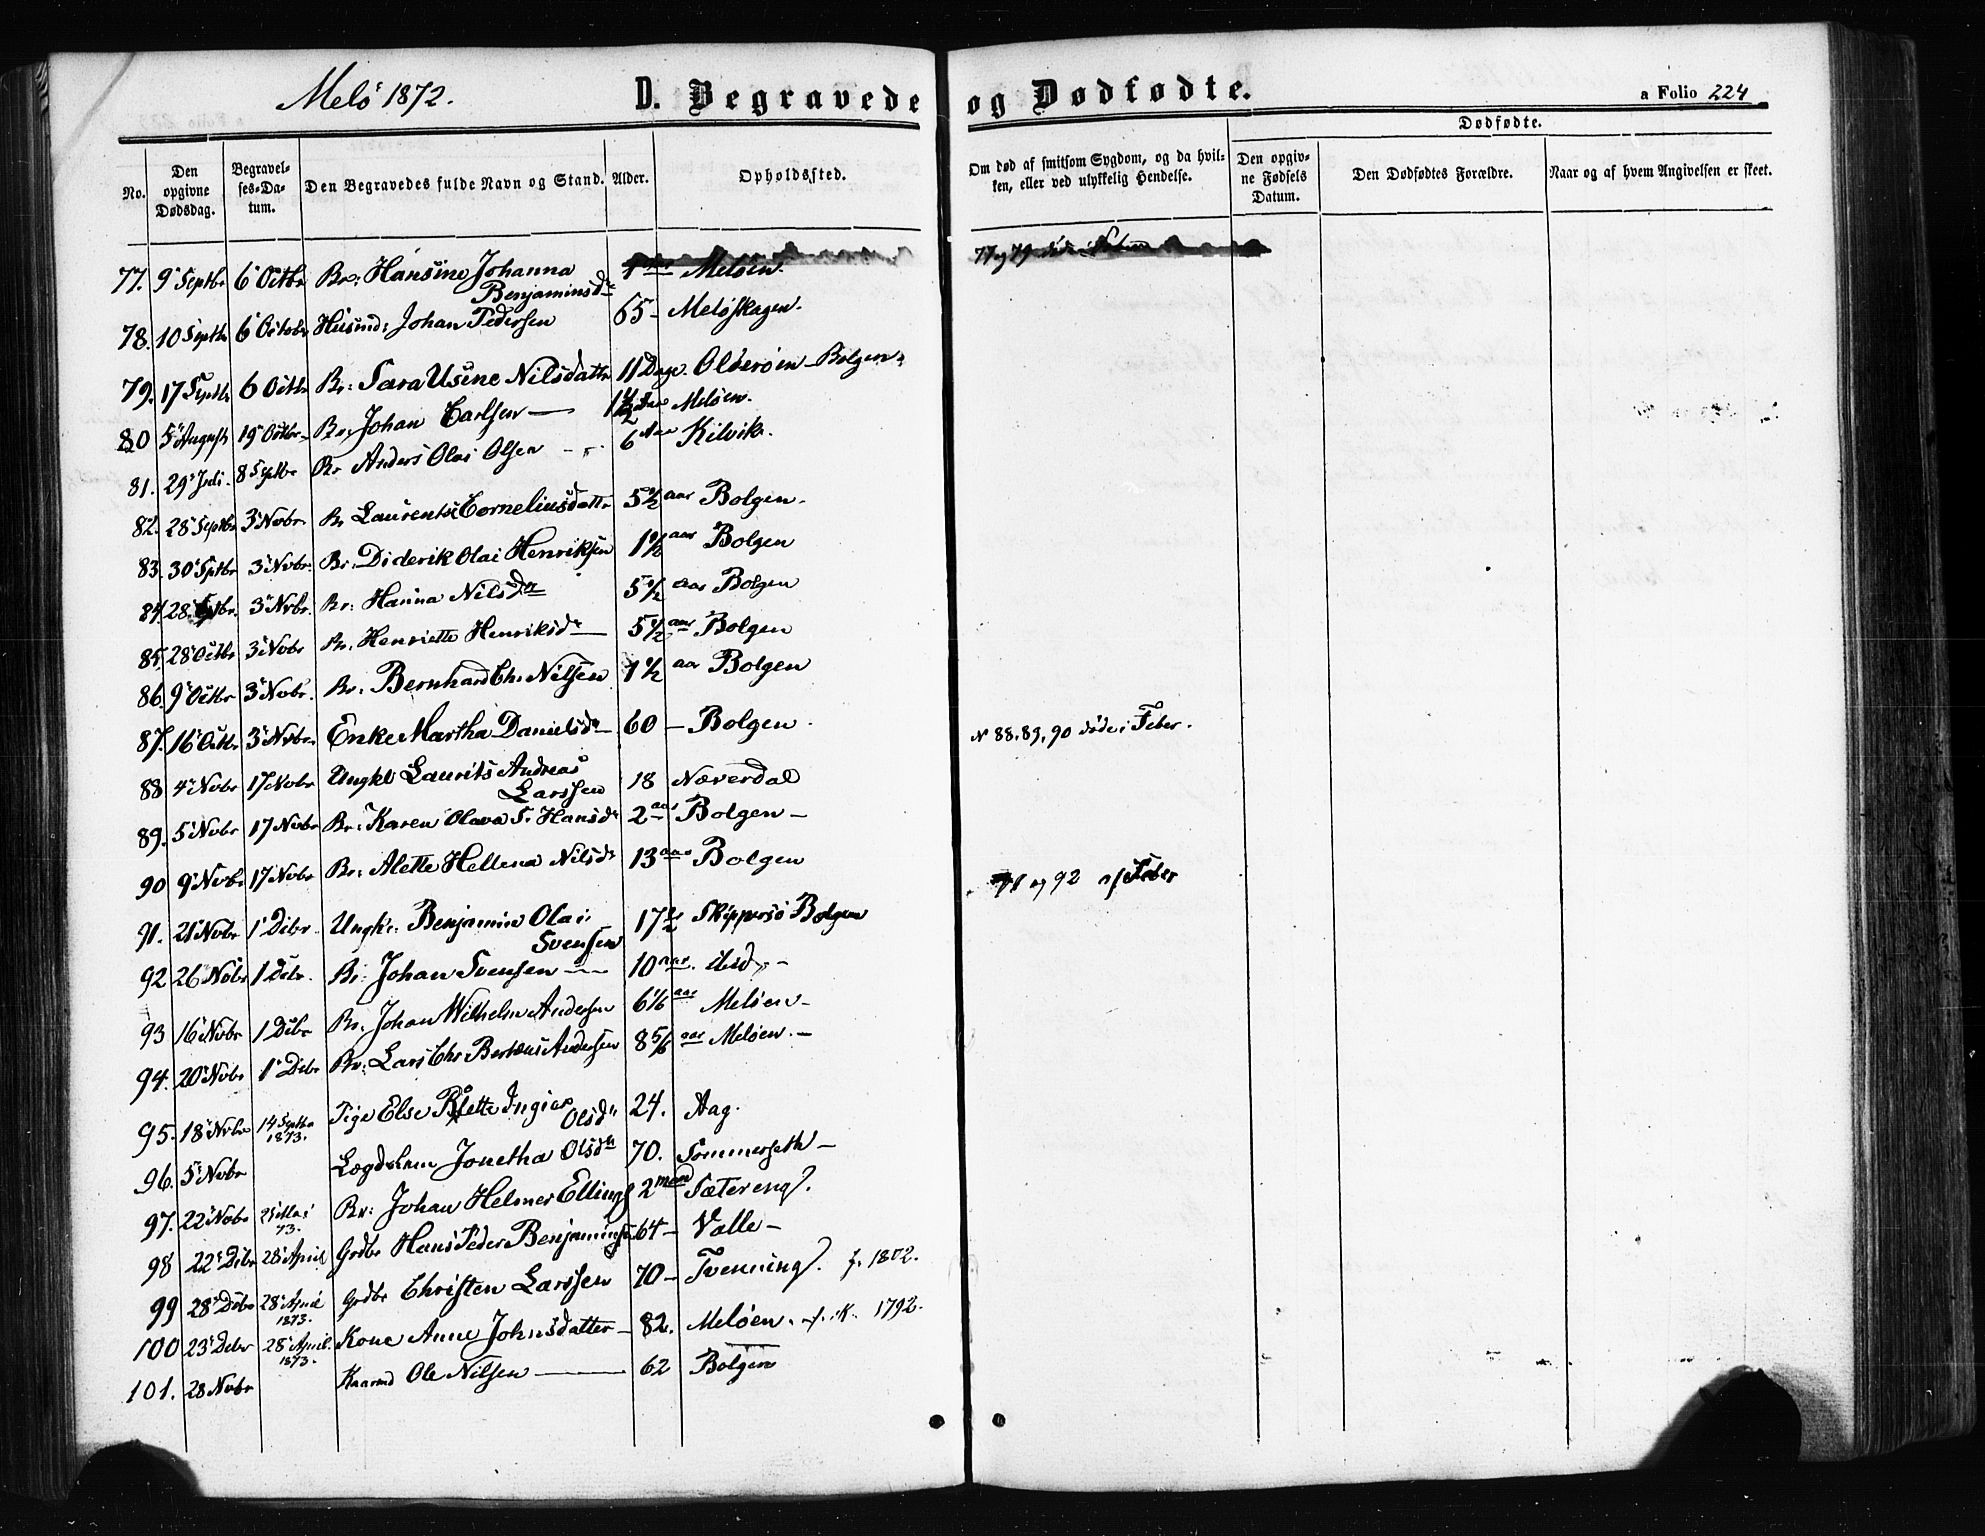 Melö 1872.
D. Begravede og Dødfødte.
a Folio 224
No.
Den opgivne Dødsdag.
Begravelses-Datum.
Den Begravedes fulde Navn og Stand.
Alder.
Opholdssted.
Om død af smitsom Sygdom, og da hvilken, eller ved ulykkelig Hendelse.
Dødfødte.
Den opgivne Fødsels Datum.
Den Dødfødtes Forældre.
Naar og af hvem Angivelsen er skeet.
77. 9 Septbr 6 Octbr Br: Hansine Johanna Benjaminsdr 1 Meløen. 77 og 79 døde
78. 10 Septbr 6 Octobr Husmd: Johan Pedersen 65 - Meløskagen.
79. 17 Septbr 6 Octbr Br: Sara Usine Nilsdattr 11 Dage. Olderøen - Bolgen.
80 5 August 19 Octbr. Br: Johan Carlsen — 1 1/2 Aar Meløen.
81. 29 Juli. 8 Septbr Br Anders Olai Olsen 6 Aar Kilvik.
82. 28 Septbr 3 Novbr. Br Laurentse Corneliusdattr 5 1/2 aar Bolgen.
83. 30 Sptbr 3 Novbr. Br. Diderik Olai Henriksen 1 1/2 aar Bolgen
84. 28 3 Nvbr. Br: Hanna Nilsdr 5 1/2 aar Bolgen
85. 28 Octbr 3 Novbr Br. Henriette Henriksdr — 5 1/2 aar Bolgen
86. 9 Octbr 3 Novbr. Br. Bernhard Chr Nilsen 1 1/2 aar Bolgen
87. 16 Octbr. 3 Novbr. Enke Martha Danielsdr — 60 — Bolgen. N 88, 89, 90 døde i Feber.
88 4 Novbr 17 Novbr Ungkl Laurits Andreas Larssen 18 Næverdal
89. 5 Novbr 17 Novbr Br: Karen Olava S. Hansdr 2 aar Bolgen —
90 9 Novbr 17 Novbr Br: Alette Hellena Nilsdr 13 aar Bolgen
91 og 92 af Feber
91. 21 Novbr 1 Debr. Ungk: Benjamin Olai Svensen 17 1/2 Skippersø Bolgen
92 26 Novbr 1 Debr. Br. Johan Svensen — 10 aar. ibid. -
93 16 Novbr 1 Debr Br. Johan Wilhelm Andersen 6 1/6 aar Meløen -
94. 20 Novbr 1 Debr Br: Lars Chr Andersen 8 5/6 aar Meløen. —
95. 18 Novbr 14 Septbr 1873. Pige Else Olsdr 24. Aag.
96. 5 Novbr Lægdslem Jonetha Olsdr 70. Sommerseth —
97. 22 Novbr 73. Br: Johan Helmer Ellings 2 Mand Sætereng.
98 22 Debr 28 April Grdbr Hans Peder Benjaminsen 64 — Valle —
99 28 Debr 28 April 1873. Grdbr Christen Larssen 70 — Tvenning. f. 1802.
100 23 Debr 28 April. 1873. Kone Anne Johnsdatter — 82. Meløen. 1792.
101. 28 Novbr Kaarmd Ole Nilsen — 62 Bolgen